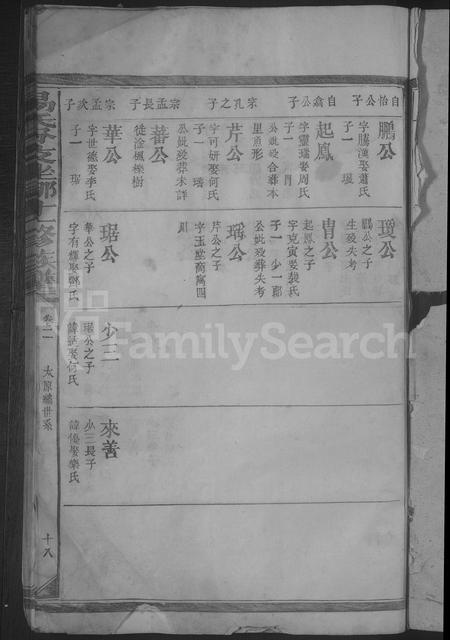 自怡公子
鵬公
字騰漢娶蕭氏
子一 瓊
自翕公子
起鳳
字靈瑞娶周氏
子一 冑
公妣歿合葬本
里魚形
宗孔之子
芹公
字可妍娶何氏
子一 瑤
公妣歿葬未詳
宗孟長子
蕃公
徙淦楓樹
宗孟次子
華公
字世穠娶李氏
子一 琚
瓊公
鵬公之子
生歿失考
冑公
起鳳之子
字克寅娶裴氏
子一 少一郎
公妣歿葬失考
瑤公
芹公之子
字玉商寓四
川
琚公
華公之子
字有輝娶鄭氏
少三
琚公之子
諱活娶何氏
來善
少三長子
諱優娶樂氏
修族譜
卷二
太原世系
十八
FamilySearch